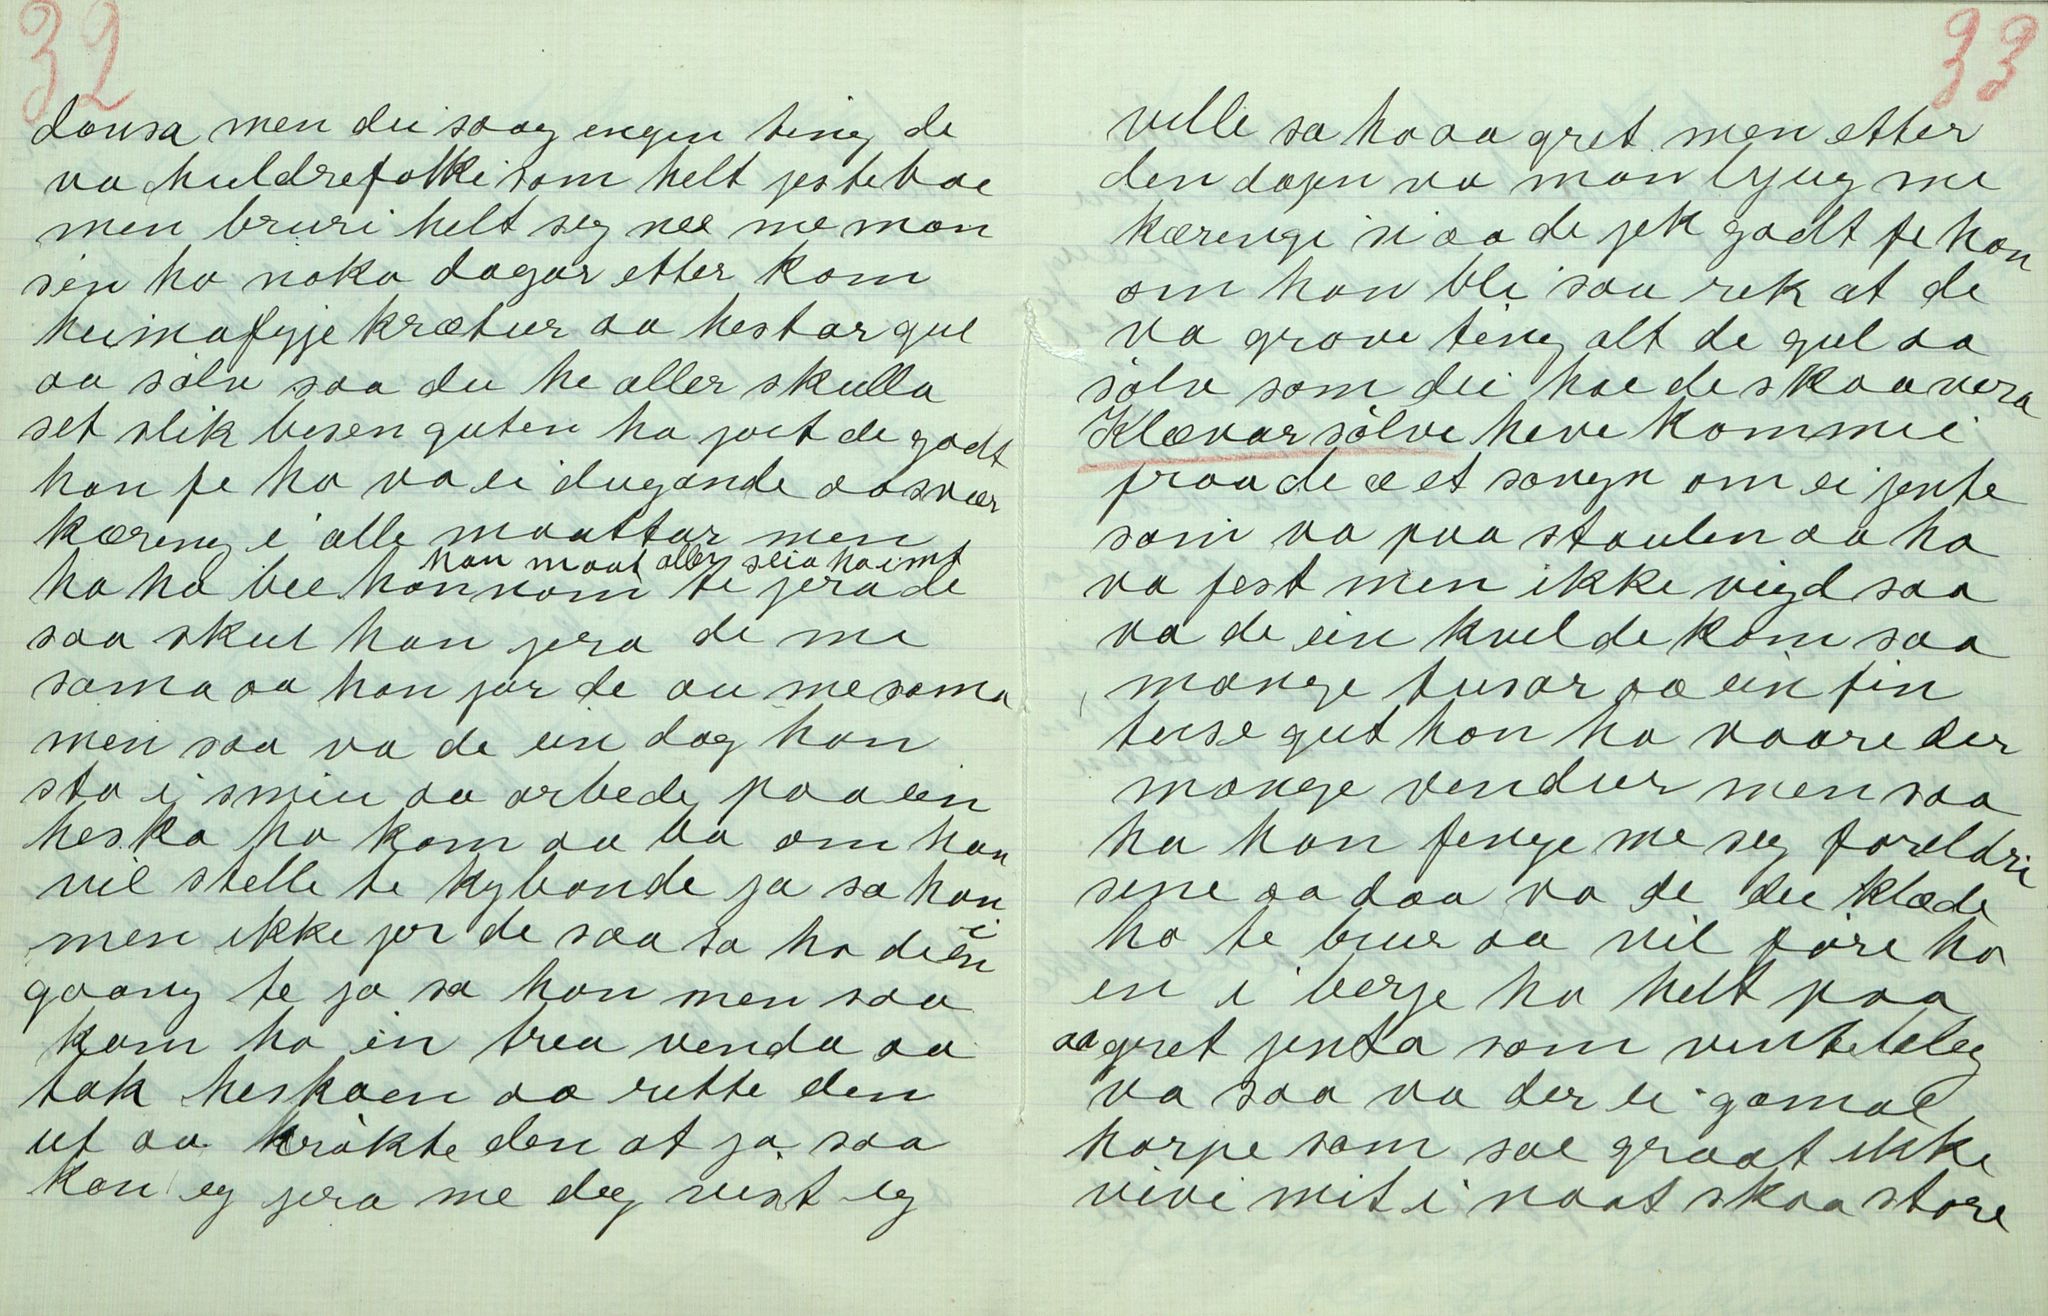 32
dansa men dei saag engen ting de
va huldrefolki som helt jestebae
men bruri helt seg nee me man
sen ha noka dagar etter kom
heimafyje krætur aa hestar gul
aa sølv saa du he aller skulla
set slik besen guten ha jort de godt
han fe ho va ei dugande aa svær
kæring i alle maattar men
han maat aller seia ho imt
ho ha bee honnom te jera de
saa skul han jera de me
sama aa han jor de au me sama
men saa va de ein dag han
sto i smiu aa arbede paa ein
hesko ho kom aa ba om han
vil stelle te kybonde ja sa han
men ikke jor de saa sa ho de ein
gaang te ja sa han men saa
kom ho in trea venda aa
tok heskoen aa rette den
ut aa krøkte den at ja saa
kan eg jera me deg vist eg
33
ville sa ho aa gret men etter
den dagen va man bljug me
kærengi si aa de jek godt fe han
om han bli saa rik at de
va grove ting alt de gul aa
sølv som dei hae de skaa vera
Klævar sølve heve kommei
fraa de æ et sangn om ei jente
som va paa staulen aa ho
va fest men ikke vigd saa
va de ein kveld de kom saa
mange tusar aa ein fin
tuse gut han ha vaare der
mange vendur men saa
ha han fenge me seg foreldri
sine aa daa va de dei klæde
ho te brur aa vil føre ho
en i berge ho helt paa
aa gret jenta som ventele leg
va saa va der ei gamal
harpe som sae graat ikke
vivi mit i naat skaa store